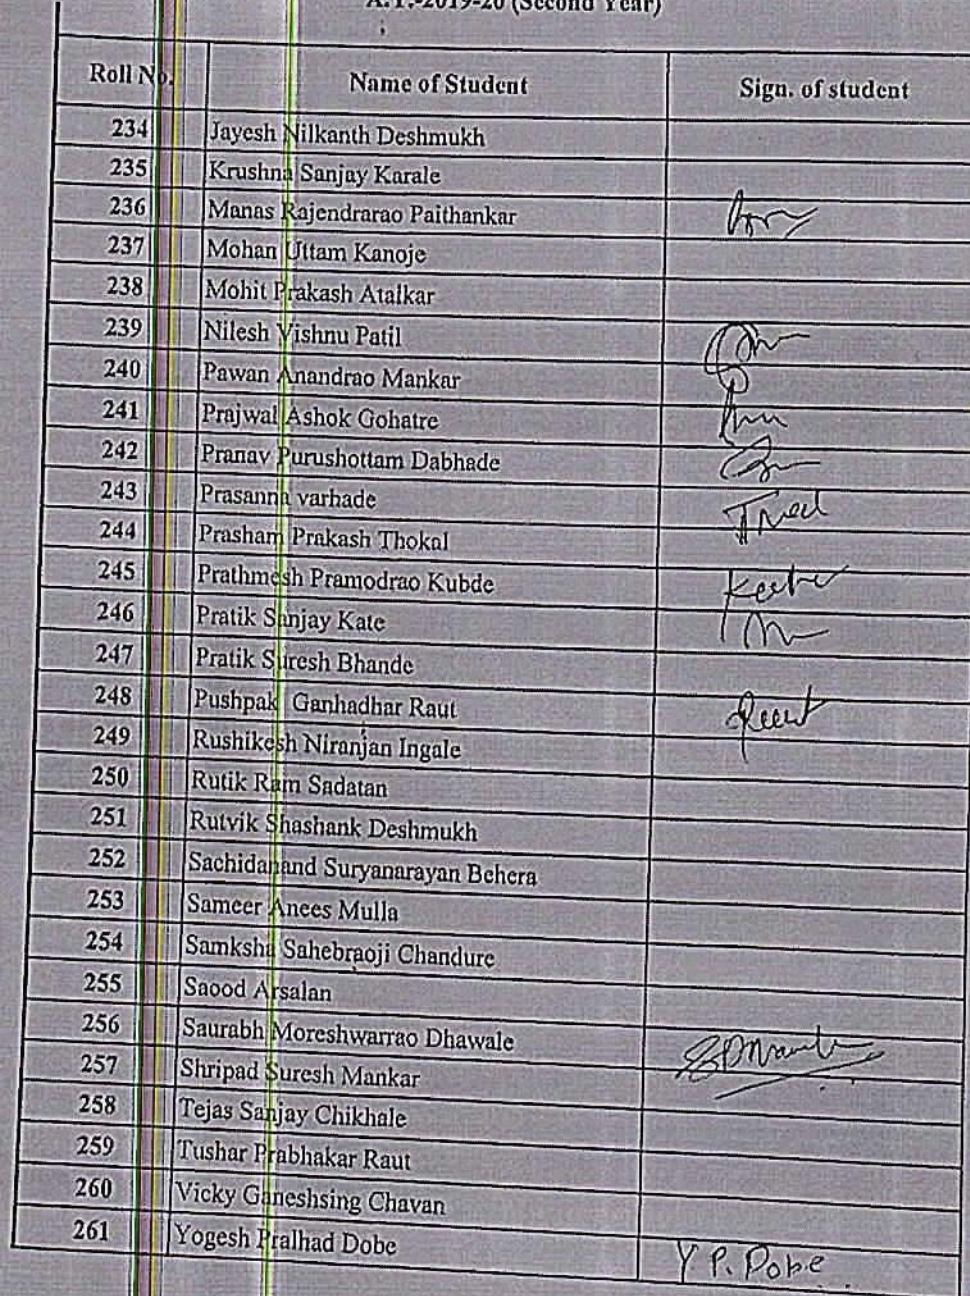 A.Y.-2019-20 (Second Year)
Roll No. Name of Student Sign. of student
234 Jayesh Nilkanth Deshmukh
235 Krushna Sanjay Karale
236 Manas Rajendrarao Paithankar
237 Mohan Uttam Kanoje
238 Mohit Prakash Atalkar
239 Nilesh Vishnu Patil
240 Pawan Anandrao Mankar
241 Prajwal Ashok Gohatre
242 Pranav Purushottam Dabhade
243 Prasanna varhade
244 Prasham Prakash Thokal
245 Prathmesh Pramodrao Kubde
246 Pratik Sanjay Kate
247 Pratik Suresh Bhande
248 Pushpak Ganhadhar Raut
249 Rushikesh Niranjan Ingale
250 Rutik Ram Sadatan
251 Rutvik Shashank Deshmukh
252 Sachidanand Suryanarayan Behera
253 Sameer Anees Mulla
254 Samksha Sahebraoji Chandure
255 Saood Arsalan
256 Saurabh Moreshwarrao Dhawale
257 Shripad Suresh Mankar
258 Tejas Sanjay Chikhale
259 Tushar Prabhakar Raut
260 Vicky Ganeshsing Chavan
261 Yogesh Pralhad Dobe Y P. Dobe